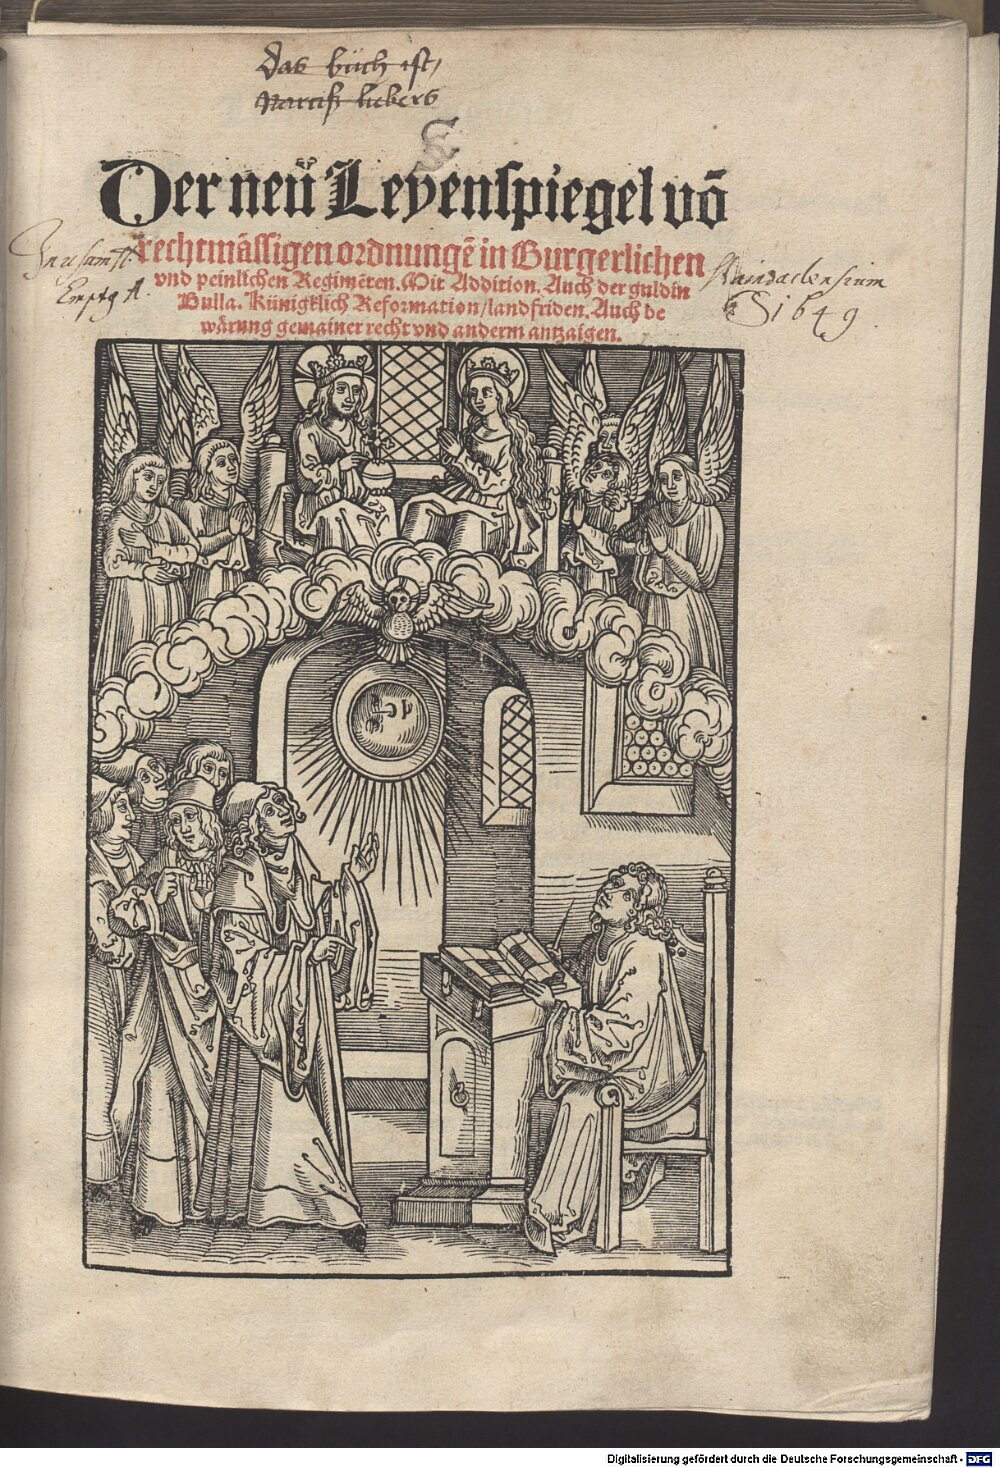 Das büch ist,
Narciß liebers
Der neü Leyenspiegel vō
rechtmässigen ordnungē in Burgerlichen
vnd peinlichen Regimēten. Mit Addition. Auch der guldin
Bulla. Künigklich Reformation/landfriden. Auch be
wärung gemainer recht vnd anderm antzaigen.
1649
Digitalisierung gefördert durch die Deutsche Forschungsgemeinschaft - DFG